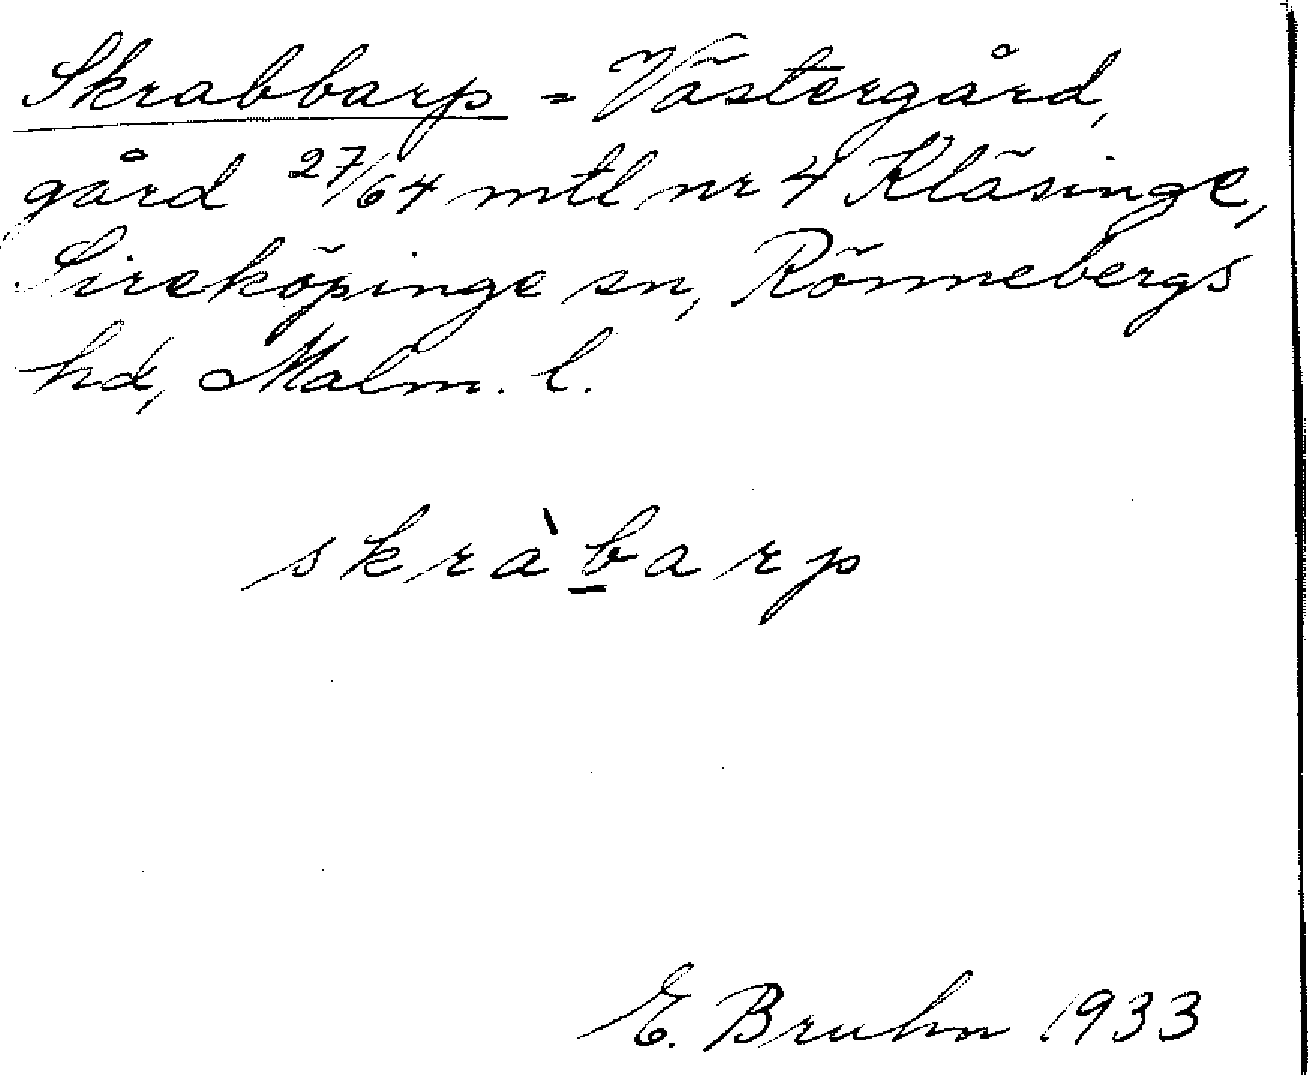 Skrabbarp = Västergård,
gård 27/64 mtl nr 4 Kläsinge,
Sireköpinge sn, Rönnebergs
hd, Malm. l.
skràb̲arp
E. Bruhn 1933